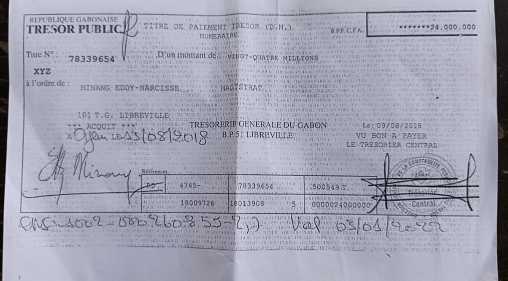 REPUBLIQUE GABONAISE
TRESOR PUBLIC
TITRE DE PAIEMENT TRESOR (D.M.)
NUMERAIRE
B.P.F.C.F.A. *******24.000.000
Titre N° : 78339654
D'un montant de : VINGT-QUATRE MILLIONS
XYZ
à l'ordre de :
MINANG EDDY-NARCISSE. MAGISTRAT
101 T.G. LIBREVILLE
*** ACQUIT ***
13/08/2018
TRESORERIE GENERALE DU GABON
B.P.5: LIBREVILLE
Le: 09/08/2018
VU BON A PAYER
LE TRESORIER CENTRAL
Minang
Références
4745- 78339654 .500549.T.
18009726 18013908 5 0000024000000
Trésorier
Central
Val 03/01/2022